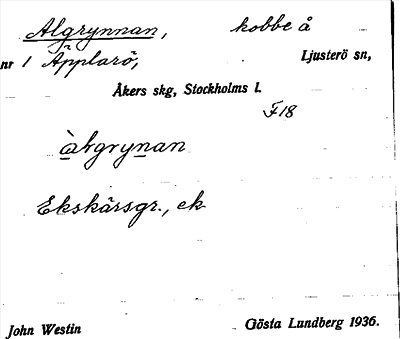 Algrynnan, kobbe å
nr 1 Äpplarö, Ljusterö sn,
Åkers skg, Stockholms l.
F18
àlgrynan
Ekskärsgr., ek
John Westin Gösta Lundberg 1936.